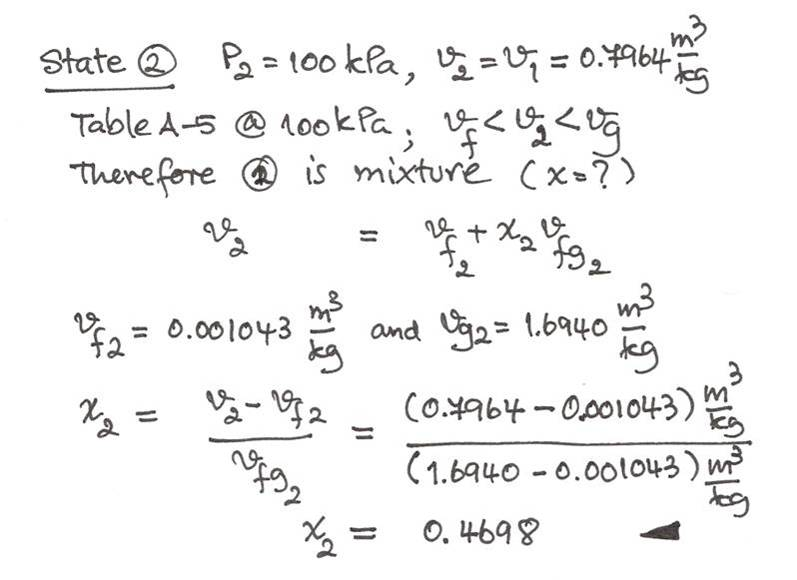 State ② P₂ = 100 kPa, v₂ = v₁ = 0.7964 m³/kg
Table A-5 @ 100 kPa; v_f < v₂ < v_g
Therefore ② is mixture (x=?)
v₂ = v_f₂ + x₂ v_fg₂
v_f₂ = 0.001043 m³/kg and v_g₂ = 1.6940 m³/kg
x₂ = (v₂ - v_f₂)/v_fg₂ = (0.7964 - 0.001043) m³/kg / (1.6940 - 0.001043) m³/kg
x₂ = 0.4698